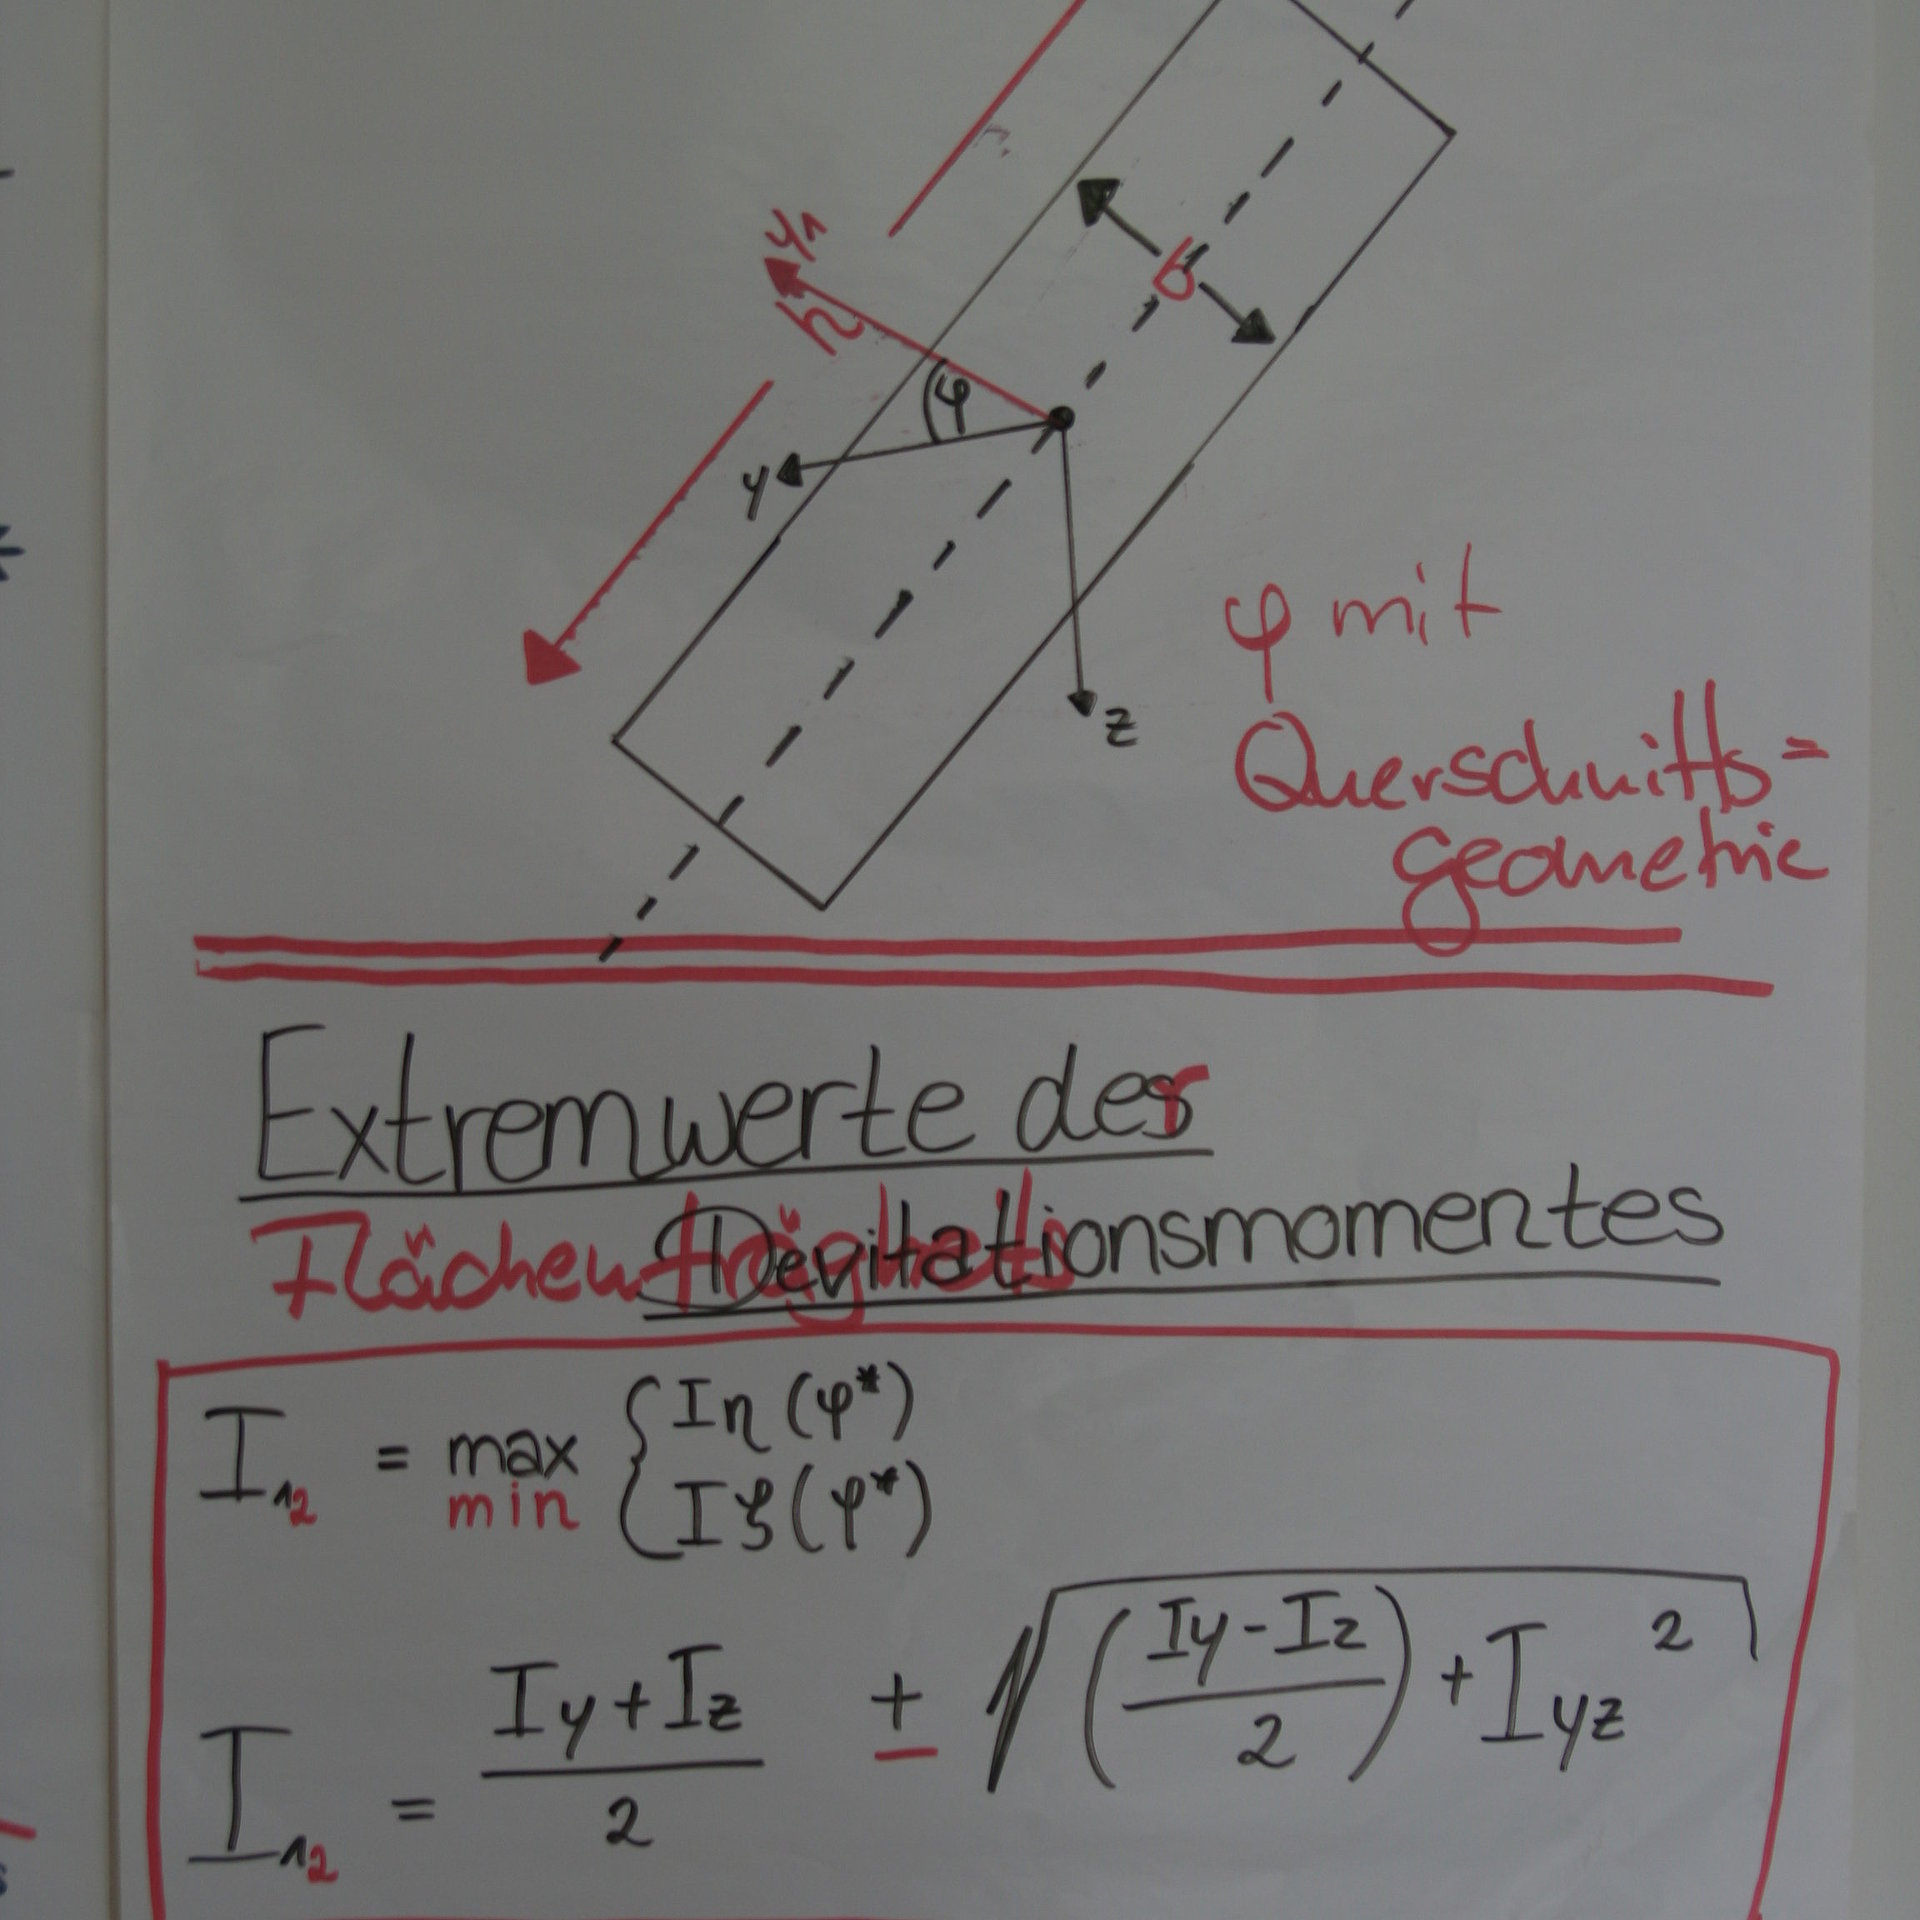 y1
h
b
φ
y
z
φ mit
Querschnitts=
geometrie
Extremwerte der
Flächenträgheits
Devitationsmomentes
I12 = max min { Iη (φ*)
Iζ (φ*)
I12 = Iy + Iz / 2 ± √( (Iy - Iz / 2) + Iyz ² )